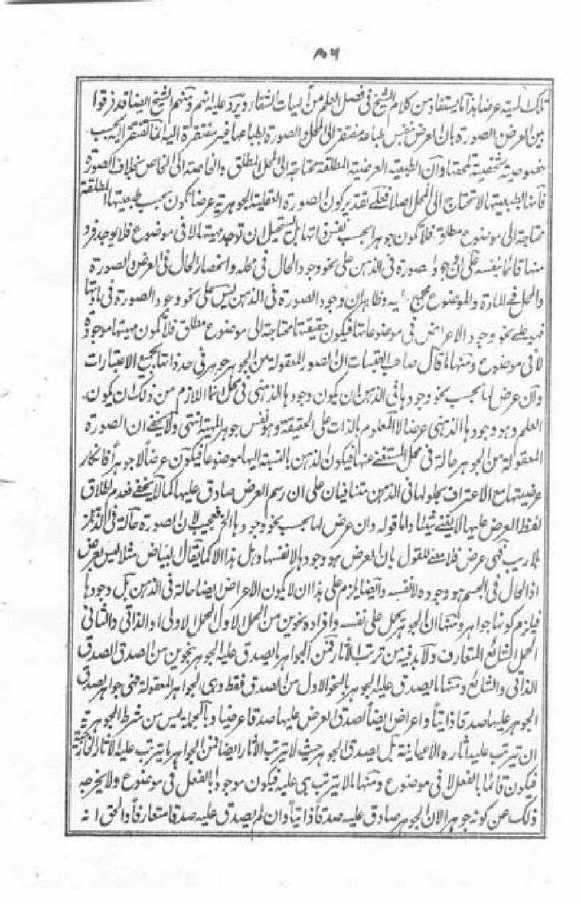 ٨٦
تلك لمية عرضا هذا ما يستفاد من كلام الشيخ فى فصل العلم من الٰهيات الشفاء ويرد عليه انهم ومنهم الشيخ ايضا قد فرقوا
بين العرض والصورة بان العرض بنفس طباعه مفتقر الى المحل والصورة بطباعها غير مفتقرة اليه انما تفتقر اليه بحسب
خصوصية شخصية تلحقها وان الطبيعة العرضية المطلقة محتاجة الى المحل المطلق والخاصة الى الخاص بخلاف الصورة
فانها لطبيعتها لا تحتاج الى المحل اصلا فعلى تقدير كون الصورة العقلية الجوهرية عرضا تكون بحسب طبيعتها المطلقة
محتاجة الى موضوع مطلق فلا تكون جوهرا بحسب نفس ذاتها بل يستحيل ان توجد مهيتها لا فى موضوع فلا يوجد فرد
منها قائما بنفسه على ان وجود صورة فى الذهن على نحو وجود الحال فى محله وانحصار الحال فى العرض والصورة
والمحل فى المادة والموضوع صحيح وظاهر ان وجود الصورة فى الذهن ليس على نحو وجود الصورة فى مادتها
فهو على نحو وجود الاعراض فى موضوعاتها فيكون حقيقتها محتاجة الى موضوع مطلق فلا تكون مهيتها موجودة
لا فى موضوع ومنها ما قال صاحب القبسات ان الصور المعقولة من الجوهر جوهر فى حد ذاتها بجميع الاعتبارات
وان عرض لها بحسب نحو وجودها فى الذهن ان يكون وجودها الذهنى فى محل انما اللازم من ذلك ان يكون
العلم وهو وجودها الذهنى عرضا لا المعلوم بالذات على الحقيقة وهو نفس جوهر المهية انتهى ولا يخفى ان الصورة
المعقولة من الجوهر حالة فى محل مستغن عنها فيكون الذهن بالنسبة اليها موضوعا فيكون عرضا لا جوهرا فانكار
عرضيتها مع الاعتراف بحلولها فى الذهن متنافيان على ان رسم العرض صادق عليها كما لا يخفى فعدم اطلاق
لفظ العرض عليها لا يغنى شيئا واما قوله وان عرض لها بحسب نحو وجودها الخ فعجيب لان الصورة حالة فى الذهن
بلا ريب فهى عرض فلا معنى للقول بان العرض هو وجودها لا نفسها وهل هذا الا كما يقال البياض مثلا ليس بعرض
اذا لحال فى الجسم هو وجوده لا نفسه وايضا يلزم على هذا ان لا يكون الاعراض ايضا حالة فى الذهن بل وجودها
فيلزم كونها جواهر ومنها ان الجوهر يحمل على نفسه وافراده بنحوين من الحمل الاول الحمل الاولى او الذاتى والثانى
الحمل الشائع المتعارف ولا بد فيه من ترتب الآثار فمن الجواهر ما يصدق عليه الجوهر بنحوين من الصدق الصدق
الذاتى والشائع ومنها ما يصدق عليه الجوهر بالنحو الاول من الصدق فقط وهى الجواهر المعقولة فهى جواهر يصدق
الجوهر عليها صدقا ذاتيا واعراض ايضا لصدق العرض عليها صدقا عرضيا وبالجملة ليس من شرط الجوهرية
ان يترتب عليه آثاره الاعيانية بل يصدق الجوهر حيث لا يترتب الآثار ايضا فمن الجواهر ما يترتب عليه الآثار الخارجية
فيكون قائما بالفعل لا فى موضوع ومنها ما لا يترتب هى عليه فيكون موجودا بالفعل فى موضوع ولا يخرجه
ذلك عن كونه جوهرا لان الجوهر صادق عليه صدقا ذاتيا وان لم يصدق عليه صدقا متعارفا والحق انه